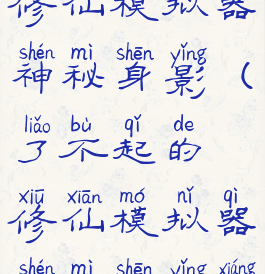 修仙模拟器
shén mì shēn yǐng
神秘身影（
liǎo bù qǐ de
了不起的
xiū xiān mó nǐ qì xiáng
修仙模拟器
shén mì shēn yǐng xiáng